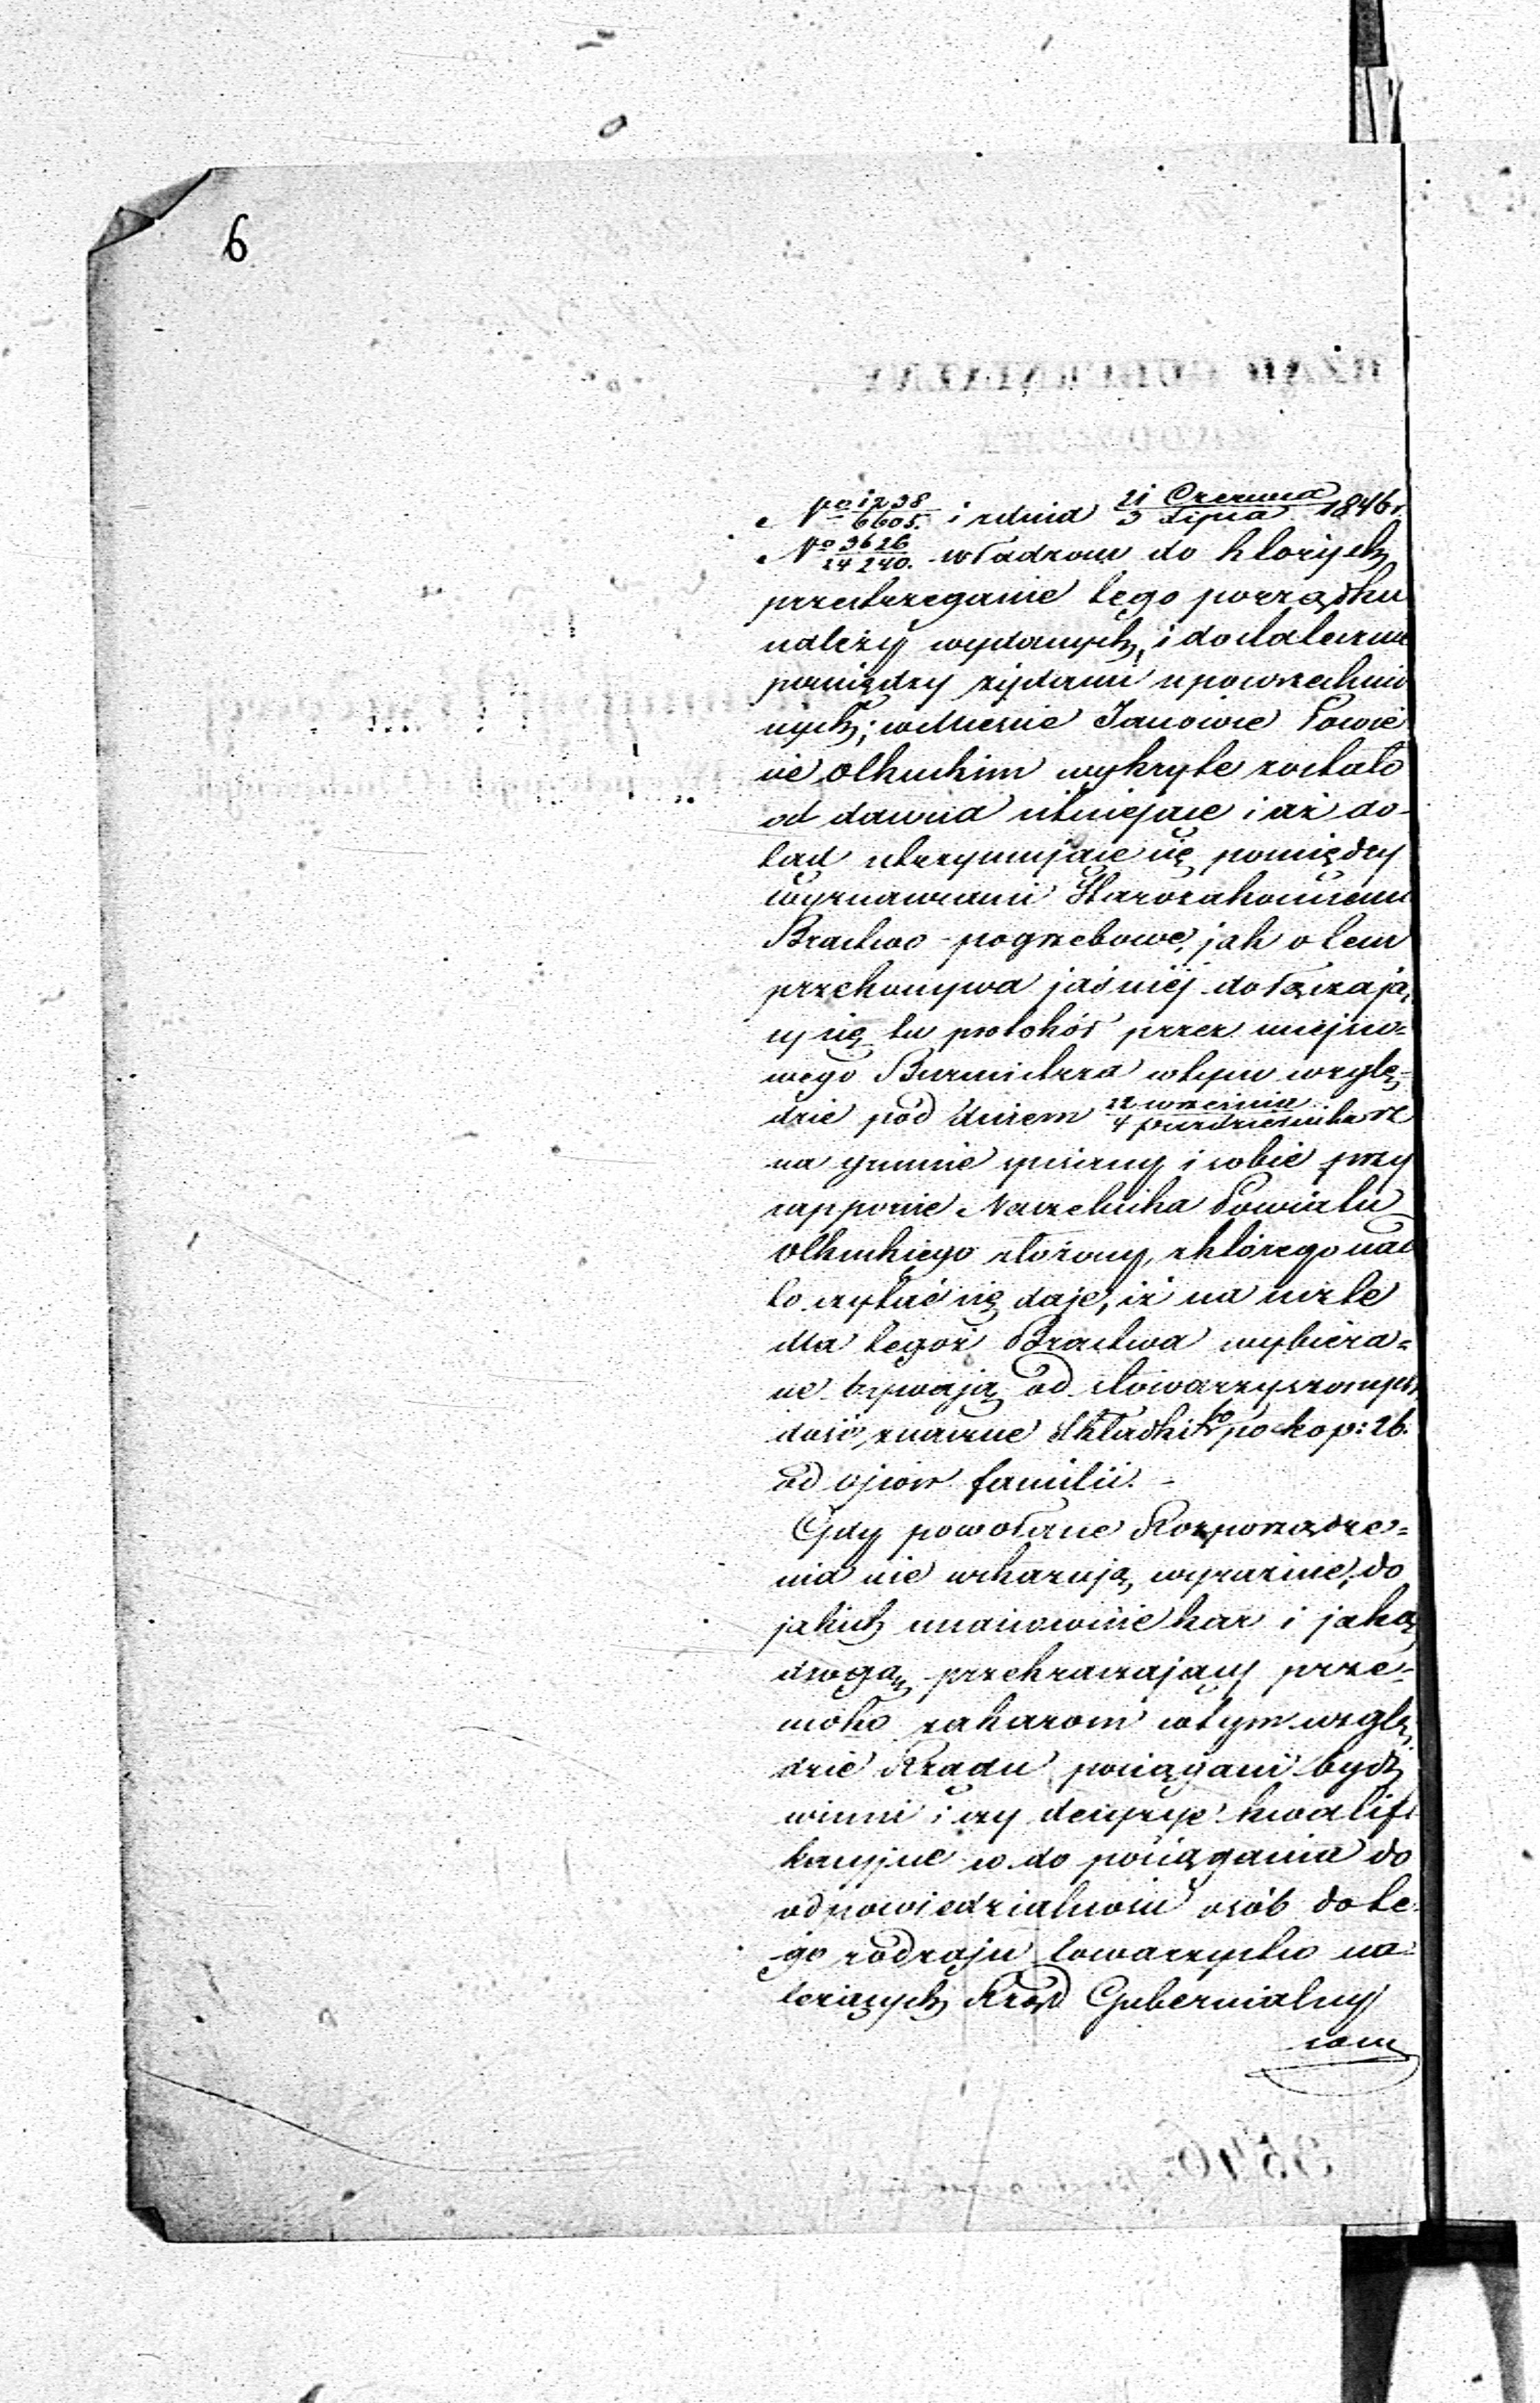 6
No 1238/6605. i z dnia 21 Czerwca/3 Lipca 1846 r.
No 3626/24240. władzom do których
przestrzeganie tego porządku
należy wydanych, i dostatecznie
pomiędzy żydami upowszechnio
nych; w Mieście Janowie Powie
cie Olkuskim wykryte zostało
od dawna istniejące i aż do-
tąd utrzymujące się pomiędzy
wyznawcami Starozakonnemi
Bractwo pogrzebowe, jak o tem
przekonywa jaśniéj dołączają,
cy się tu protokół przez miejsco=
wego Burmistrza w tym wzglę=
dzie pod dniem 22 września/4 października rz
na gruncie spisany i sobie przy
rapporcie Naczelnika Powiatu
Olkuskiego złożony, z którego nad
to czytać się daje, iż na rzecz te
dla tegoż Bractwa wybiera=
ne bywają od stowarzyszonych
dość znaczne Składki bo po kop: 26.
od ojców familii. -
Gdy powołane Rozporządze=
nia nie wskazują wyraźnie, do
jakich mianowicie kar i jaką
drogą przekraczający prze=
moko zakazom w tym wzglę,
dzie Rządu pociągani bydź
winni; czy decyzye kwalifi
kacyjne co do pociągania do
odpowiedzialności osób do te
go rodzaju towarzystw na=
leżących Rząd Gubernialny
sam